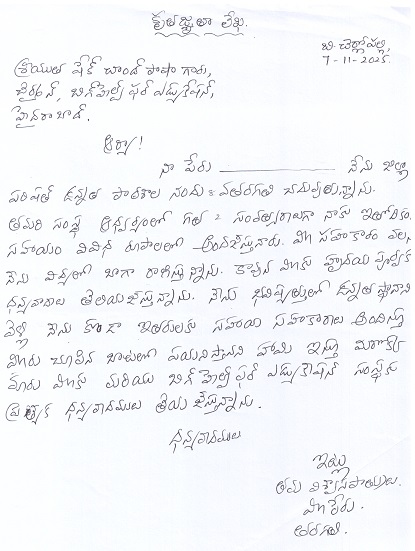 కృతజ్ఞతా లేఖ.
బి.చెర్లోపల్లి,
7-11-2025.
శ్రీయుత షేక్ చాంద్ పాషా గారు,
చైర్మన్, బిగ్ హెల్ప్ ఫర్ ఎడ్యుకేషన్,
హైదరాబాద్.
ఆర్యా!
నా పేరు ____________ నేను జిల్లా
పరిషత్ ఉన్నత పాఠశాల నందు 8 వతరగతి చదువుతున్నాను.
తమరి సంస్థ ఆధ్వర్యంలో గత 2 సంవత్సరాలుగా నాకు ఇతోధికం
సహాయం వివిధ రూపాలలో అందజేస్తున్నారు. మీ సహకారం వలన
నేను విద్యలో బాగా రాణిస్తున్నాను. కావున మీకు హృదయ పూర్వక
ధన్యవాదాలు తెలియజేస్తున్నాను. నేను భవిష్యత్తులో ఉన్నత స్థానానికి
వెళ్లి నేను కూడా ఇతరులకు సహాయ సహకారాలు అందిస్తూ
మీరు చూపిన బాటలో పయనిస్తానని హామీ ఇస్తూ మరొక్క
మారు మీకు మరియు బిగ్ హెల్ప్ ఫర్ ఎడ్యుకేషన్ సంస్థకు
ప్రత్యేక ధన్యవాదములు తెలియజేస్తున్నాను.
ధన్యవాదములు
ఇట్లు
తమ విశ్వాసపాత్రులు.
మీ పేరు.
తరగతి.